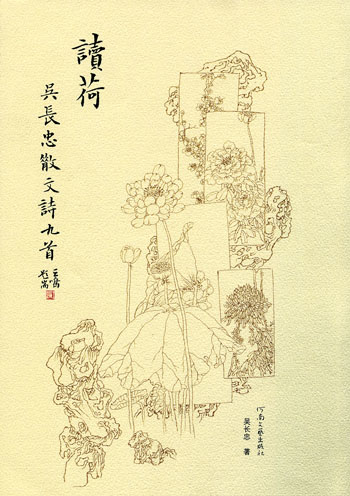 讀荷
吳長忠散文詩九首
河南文艺出版社
吴长忠 著